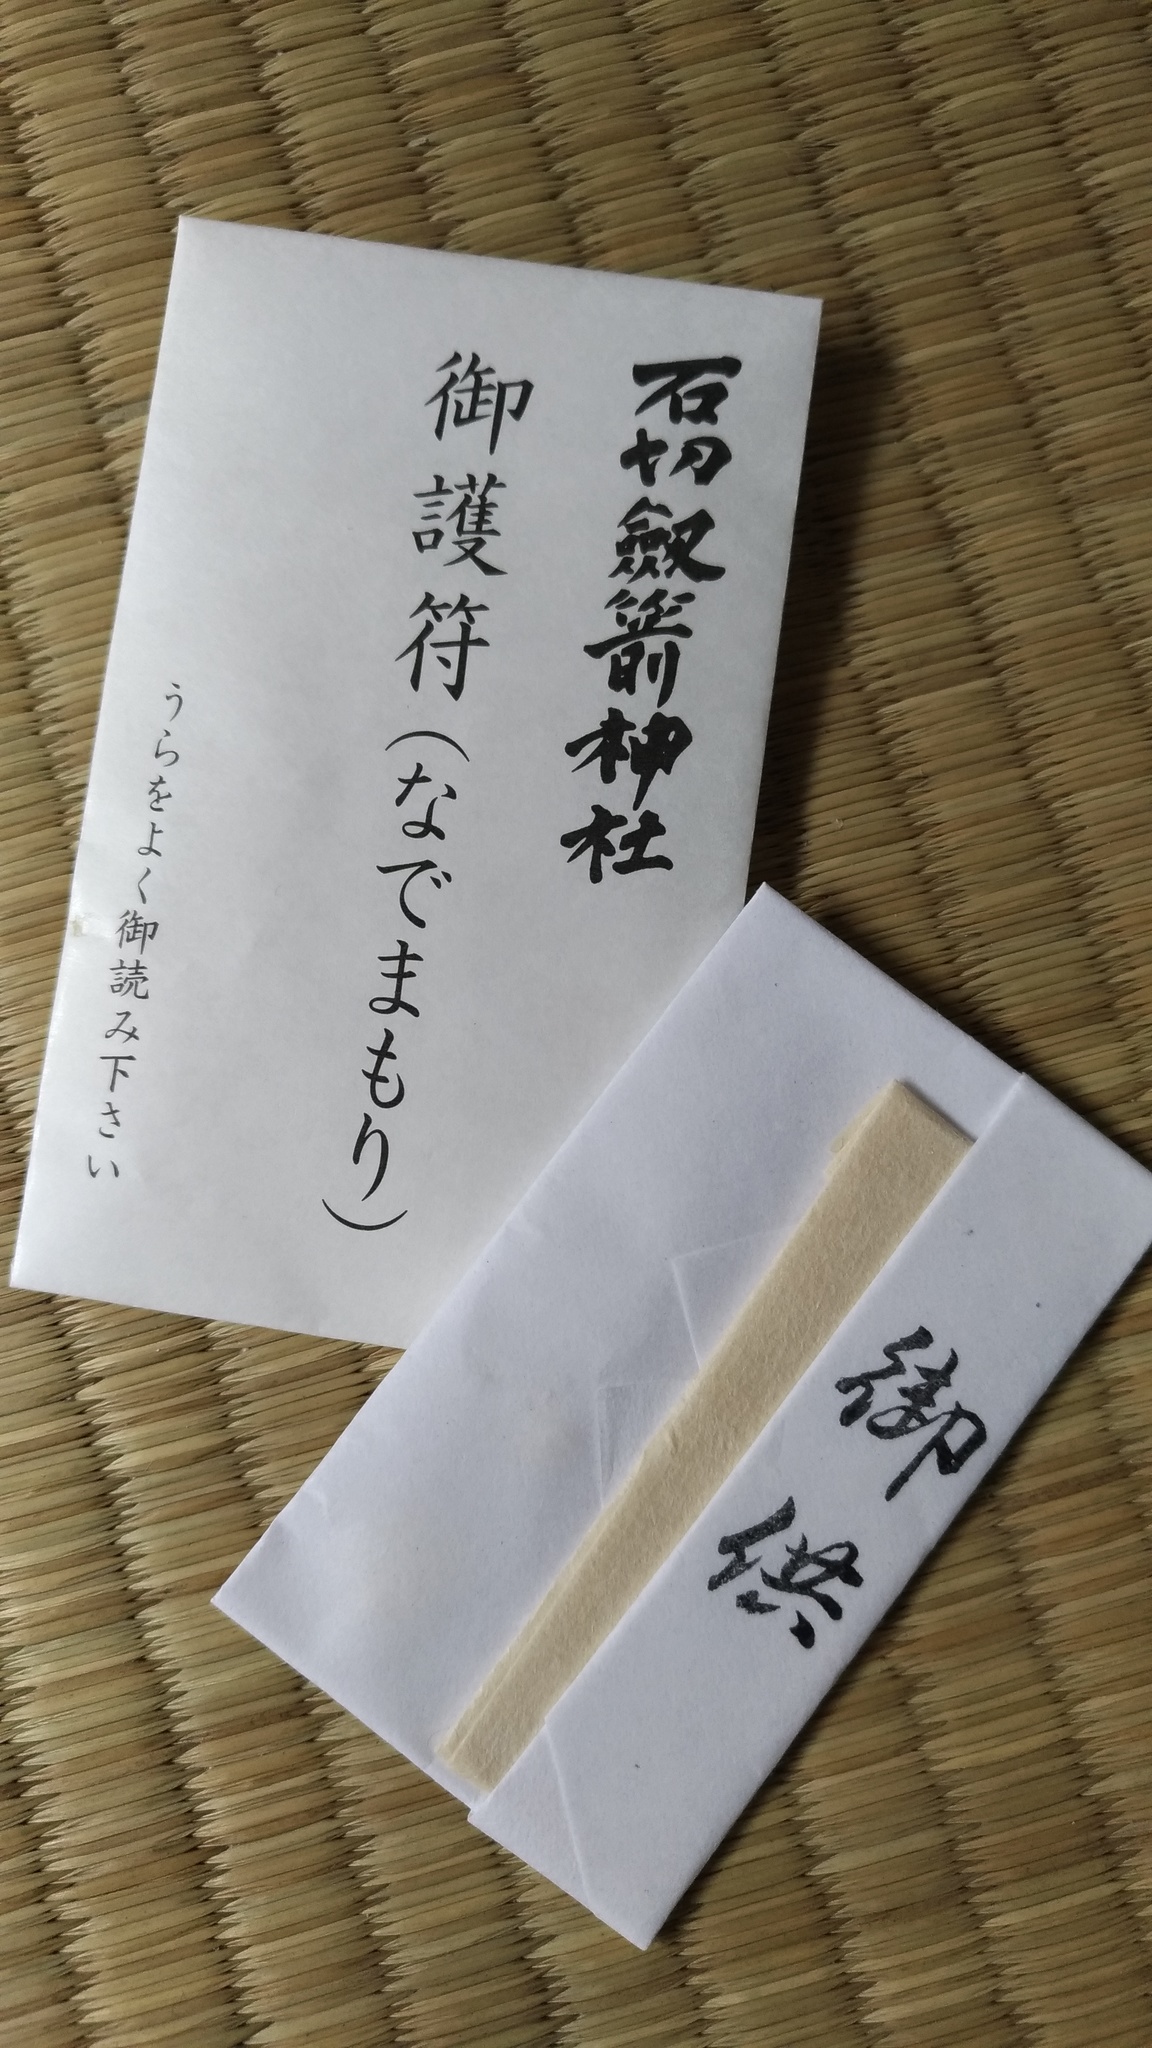 石切劔箭神社
御護符(なでまもり)
うらをよく御読み下さい
御供